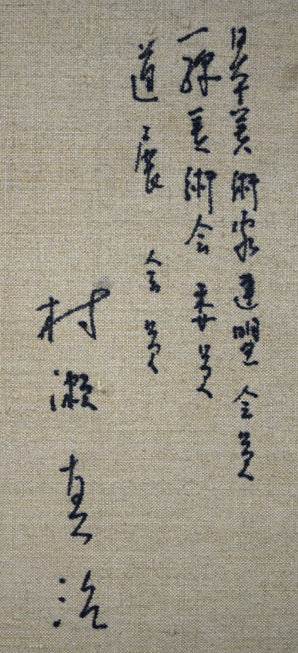 日本美術家連盟 会員
一線美術会 委員
道展 会員
村瀬真治